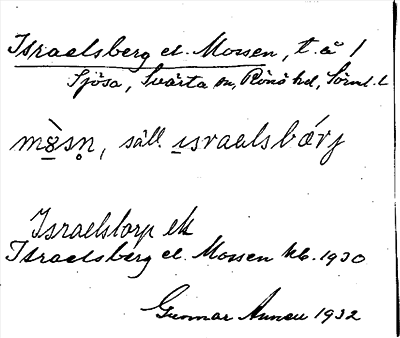 Israelsberg el. Mossen, t. å 1
Sjösa, Svärta sn, Rönö hd, Sörml. l.
mɷ̀sn̥, säll. ısraelsbærj
Israelstorp ek
Israelsberg el. Mossen kb. 1930
Gunnar 1932